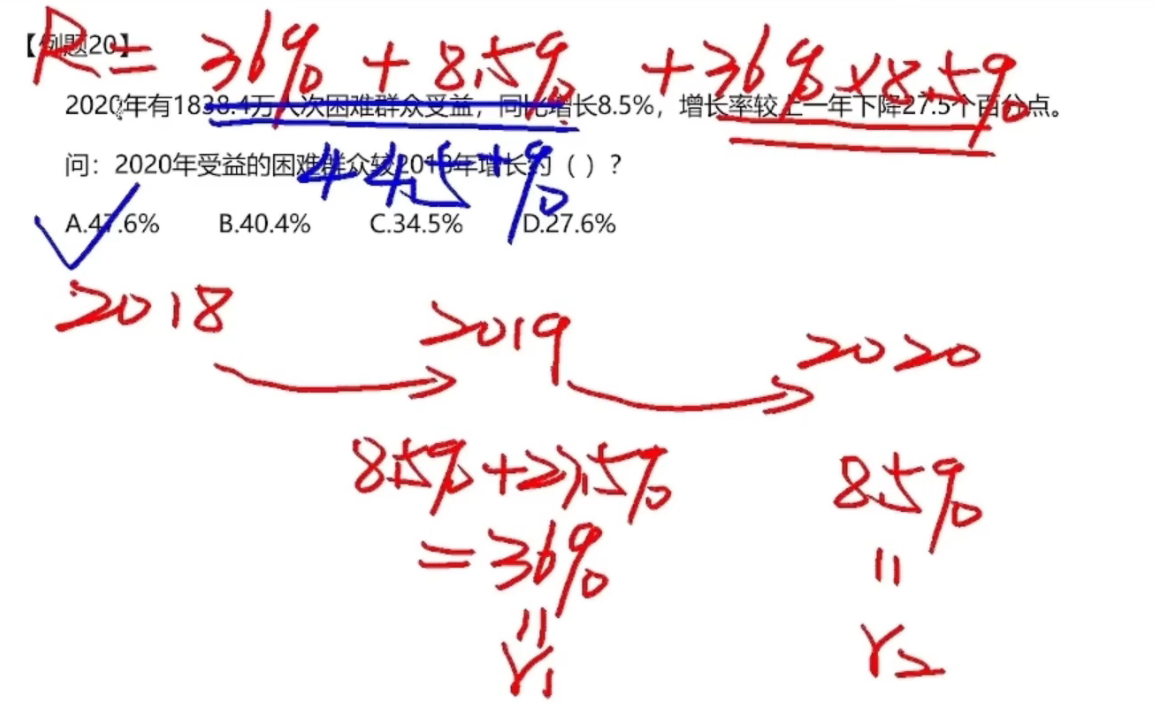 【例题20】
R = 36% + 8.5% + 36% × 8.5%
2020年有1838.4万人次困难群众受益，同比增长8.5%，增长率较上一年下降27.5个百分点。
44.5+%
问：2020年受益的困难群众较2018年增长约（ ）？
A.47.6% B.40.4% C.34.5% D.27.6%
2018 2019 2020
8.5% + 27.5% 8.5%
= 36% =
= r₂
r₁